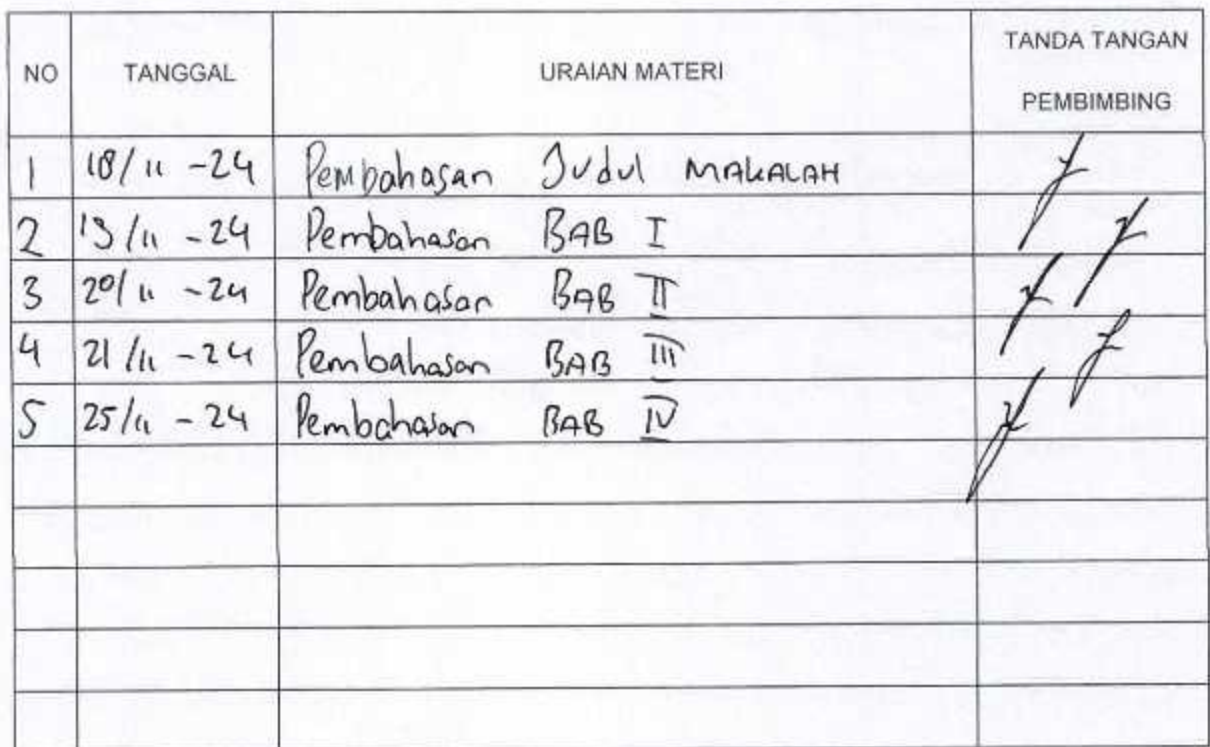 NO TANGGAL URAIAN MATERI TANDA TANGAN PEMBIMBING
1 18/11 -24 Pembahasan Judul MAKALAH
2 19/11 -24 Pembahasan BAB I
3 20/11 -24 Pembahasan BAB II
4 21/11 -24 Pembahasan BAB III
5 25/11 -24 Pembahasan BAB IV